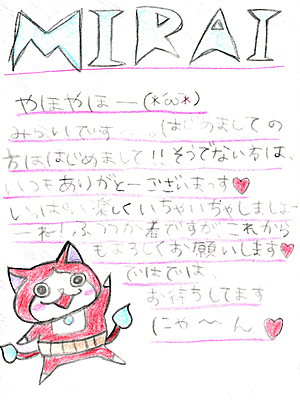 MIRAI
やほやほー(*'ω'*)
みらいですー。はじめましての
方ははじめまして!!そうでない方は、
いつもありがとーございまっす♥
いっぱい楽しくいちゃいちゃしましょー
これ!ふつつか者ですがこれから
もよろしくお願いします♥
ではでは、
お待ちしてます
にゃ〜ん♥